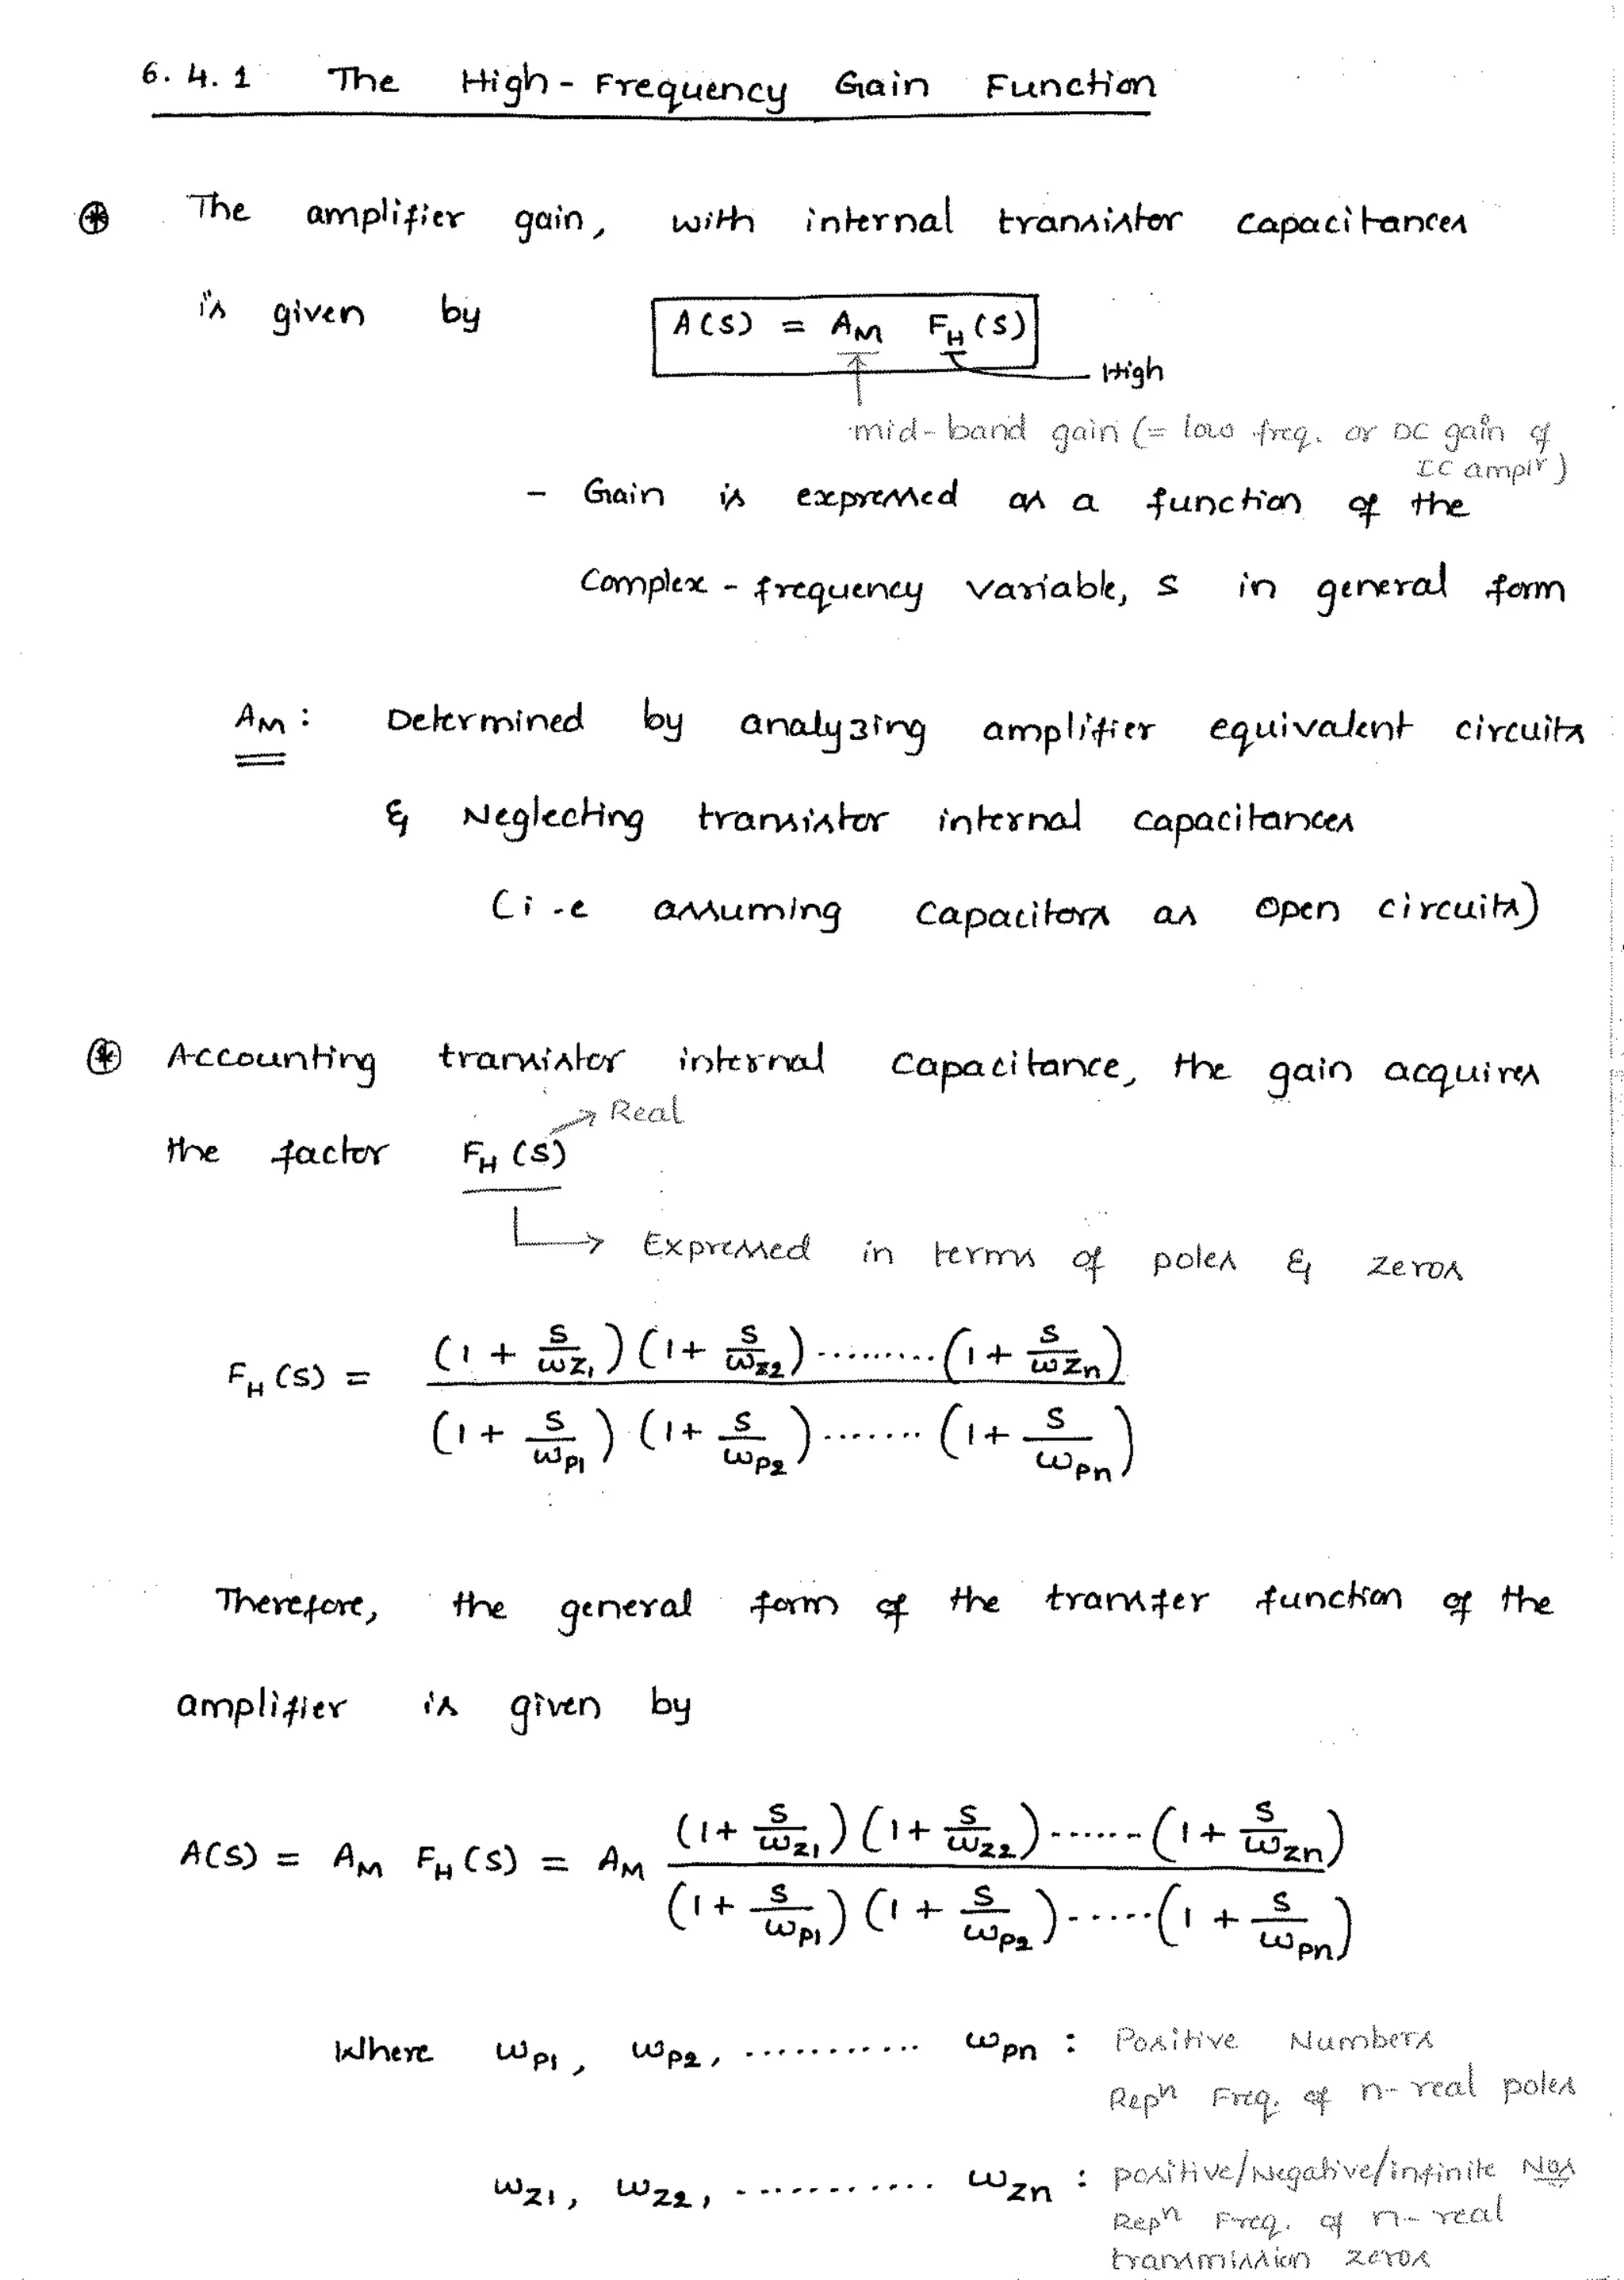 6.4.1 The High-Frequency Gain Function
⊛ The amplifier gain, with internal transistor capacitances
is given by A(S) = A_M F_H(S)
High
mid-band gain (= low freq. or DC gain of
IC amplr)
- Gain is expressed as a function of the
Complex-frequency variable, S in general form
A_M : Determined by analyzing amplifier equivalent circuits
& Neglecting transistor internal capacitances
(i.e assuming capacitors as open circuits)
⊛ Accounting transistor internal capacitance, the gain acquires
→ Real
the factor F_H(S)
→ Expressed in terms of poles & zeros
F_H(S) = (1 + S/ω_Z1)(1 + S/ω_Z2).........(1 + S/ω_Zn) / (1 + S/ω_P1)(1 + S/ω_P2).......(1 + S/ω_Pn)
Therefore, the general form of the transfer function of the
amplifier is given by
A(S) = A_M F_H(S) = A_M (1 + S/ω_Z1)(1 + S/ω_Z2).......(1 + S/ω_Zn) / (1 + S/ω_P1)(1 + S/ω_P2)......(1 + S/ω_Pn)
Where ω_P1, ω_P2, ........... ω_Pn : Positive Numbers
Repⁿ Freq. of n-real poles
ω_Z1, ω_Z2, ........... ω_Zn : positive/Negative/infinite Nos
Repⁿ Freq. of n-real
transmission zeros